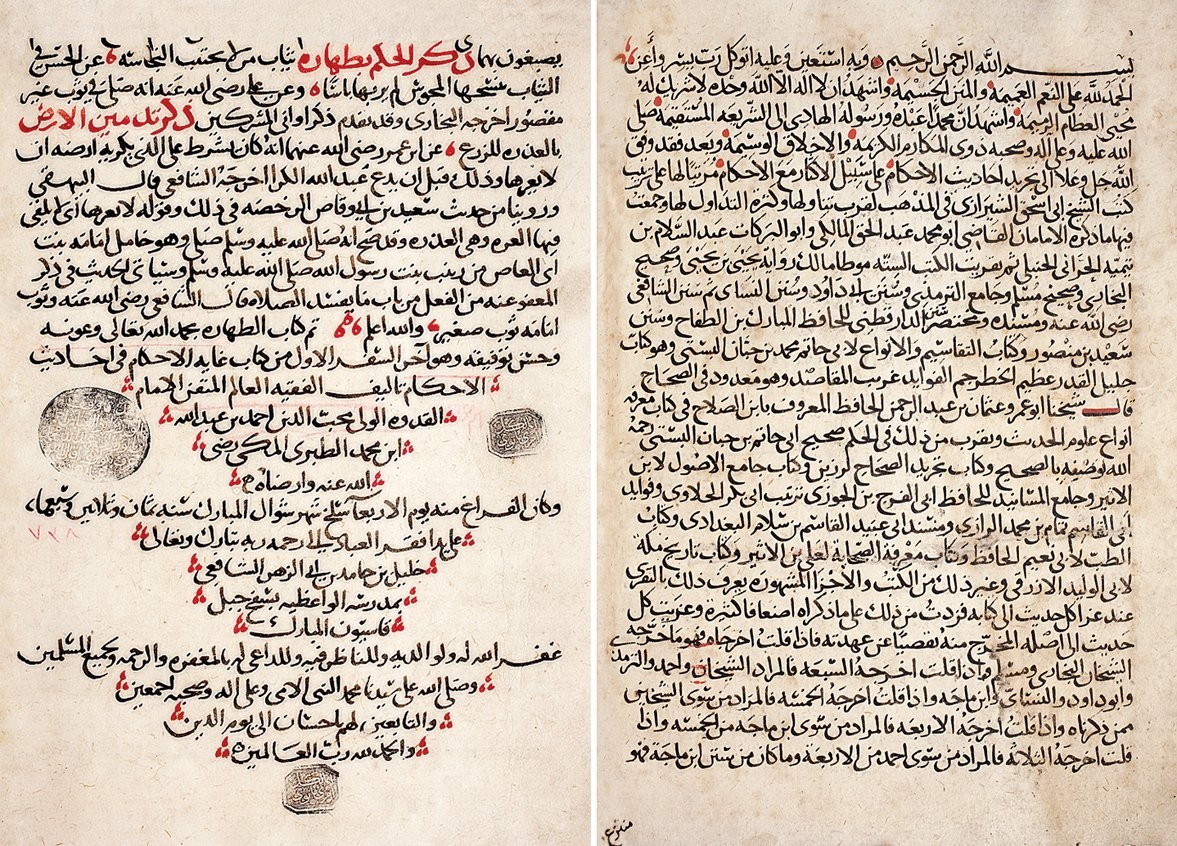 بسم الله الرحمن الرحيم وبه استعين وعليه اتوكل رب يسر واعن
الحمد لله على النعم العميمة والمنن الجسيمة واشهد ان لا اله الا الله وحده لا شريك له
محيي العظام الرميمة واشهد ان محمدا عبده ورسوله الهادي الى الشريعة المستقيمة صلى
الله عليه وعلى اله وصحبه ذوي المكارم الكريمة والاخلاق الوسيمة وبعد فقد وفق
الله جل وعلا الى تجريد احاديث الاحكام على سبيل الاكثار مع الاحكام مرتبا لها على ترتيب
كتب الشيخ ابي اسحق الشيرازي في المذهب لقرب تناولها وكثرة التداول لها وجمعت
فيها ما ذكره الامامان القاضي ابو محمد عبد الحق المالكي وابو البركات عبد السلام بن
تيمية الحراني الحنبلي ثم بقريت الكتب الستة موطا مالك رواية يحيى بن يحيى وصحيح
البخاري وصحيح مسلم وجامع الترمذي وسنن ابي داود وسنن النساي ثم سنن الشافعي
رضي الله عنه ومسنده ومختصر سنن الدارقطني للحافظ المبارك بن الطفاح وسنن
سعيد بن منصور وكتاب التقاسيم والانواع لابي حاتم محمد بن حبان البستي وهو كتاب
جليل القدر عظيم الخطر جم الفوايد غريب المقاصد وهو معدود في الصحاح
قال شيخنا ابو عمرو عثمان بن عبد الرحمن الحافظ المعروف بابن الصلاح في كتاب معرفة
انواع علوم الحديث ويقرب من ذلك في الحكم صحيح ابي حاتم بن حبان البستي رحمه
الله لوصفه بالصحيح وكتاب تجريد الصحاح لرزين وكتاب جامع الاصول لابن
الاثير وجامع المسانيد للحافظ ابي الفرج بن الجوزي ترتيب ابي بكر الحلاوي وفوايد
ابي القاسم تمام بن محمد الرازي ومسند ابي عبيد القاسم بن سلام البغدادي وكتاب
الطب لابي نعيم الحافظ وكتاب معرفة الصحابة لعلي بن الاثير وكتاب تاريخ مكة
لابي الوليد الازرقي وغير ذلك من الكتب والاجزا المشهورة يعرف ذلك بالتقري
عند عزا كل حديث الى كتابه فزدت من ذلك على ما ذكراه اضعافا كثيرة وعزيت كل
حديث الى اصله المخرج منه تفصيا عن عهدته فاذا قلت اخرجاه فهو ما خرجه
الشيخان البخاري ومسلم واذا قلت اخرجه السبعة فالمراد الشيخان واحمد والترمذي
وابو داود والنساي وابن ماجه واذا قلت اخرجه الخمسة فالمراد من سوى الشيخين
ممن ذكرناه واذا قلت اخرجه الاربعة فالمراد من سوى ابن ماجه من الخمسة واذا
قلت اخرجه الثلاثة فالمراد من سوى احمد من الاربعة وما كان من سنن ابن ماجة فهو
يصبغون بها ذكر الحكم بطهارة ثياب من لا يجتنب النجاسة عن الحسن في
الثياب ينسجها المجوس لم ير بها باسا وعن علي رضي الله عنه انه صلى في ثوب غير
مقصور اخرجه البخاري وقد تقدم ذكر اواني المشركين ذكر تدمين الارض
بالعذرة للزرع عن ابن عمر رضي الله عنهما انه كان يشترط على الذي يكريه ارضه ان
لا يعرها وذلك قبل ان يدع عبد الله الكرا اخرجه الشافعي قال البيهقي
وروينا من حديث سعد بن ابي وقاص الرخصه في ذلك وقوله لا يعرها اي لا يلقي
فيها العرة وهي العذرة وقد صح انه صلى الله عليه وسلم صلى وهو حامل امامة بنت
ابي العاص من زينب بنت رسول الله صلى الله عليه وسلم وسياتي الحديث في ذكر
المعفو عنه من الفعل من باب ما يفسد الصلاة قال الشافعي رضي الله عنه وثوب
امامة ثوب صغير والله اعلم تم كتاب الطهارة بحمد الله تعالى وعونه
وحسن توفيقه وهو آخر السفر الاول من كتاب غاية الاحكام في احاديث
الاحكام تاليف الفقيه العالم المتقن الامام
القدوة الولي محب الدين احمد بن عبد الله
ابن محمد الطبري المكي رضي
الله عنه وارضاه
وكان الفراغ منه يوم الاربعا سلخ شهر شوال المبارك سنة ثمان وثلاثين وسبعماية
على يد افقر العباد الى رحمة ربه تبارك وتعالى
خليل بن حامد بن ابي الزهر الشافعي
بمدرسة الواعظية بسفح جبل
قاسيون المبارك
غفر الله له ولوالديه وللناظر فيه وللداعي له بالمغفرة والرحمة ولجميع المسلمين
وصلى الله على سيدنا محمد النبي الامي وعلى اله وصحبه اجمعين
والتابعين لهم باحسان الى يوم الدين
والحمد لله رب العالمين